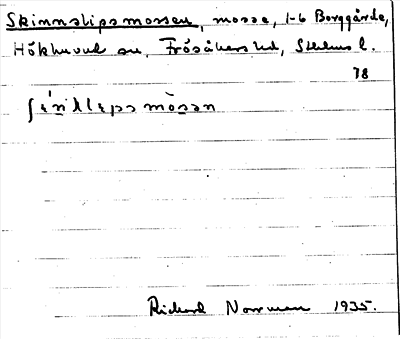 Skinnslipsmossen, mosse, 1-6 Borggårde,
Hökhuvud sn, Frösåkers hd, Sthlms l.
78
Richard Norrman 1935.